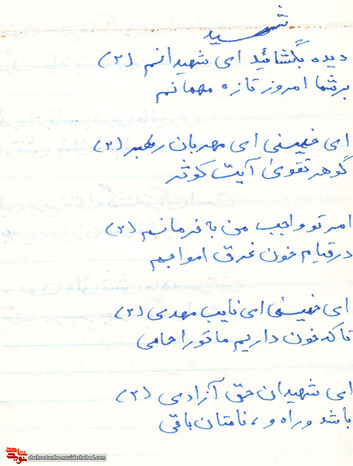 شهید
دیده بگشائید ای شهیدانم (۲)
بر شما امروز تازه مهمانم
ای خمینی ای مهربان رهبر (۲)
گوهر تقوی آیت کوثر
امر تو واجب من به فرمانم (۲)
در قیام خون غرق امواجم
ای خمینی ای نایب مهدی (۲)
تا که خون داریم ما تو را حامی
ای شهیدان حق آزادی (۲)
باشد و راه و، نامتان باقی